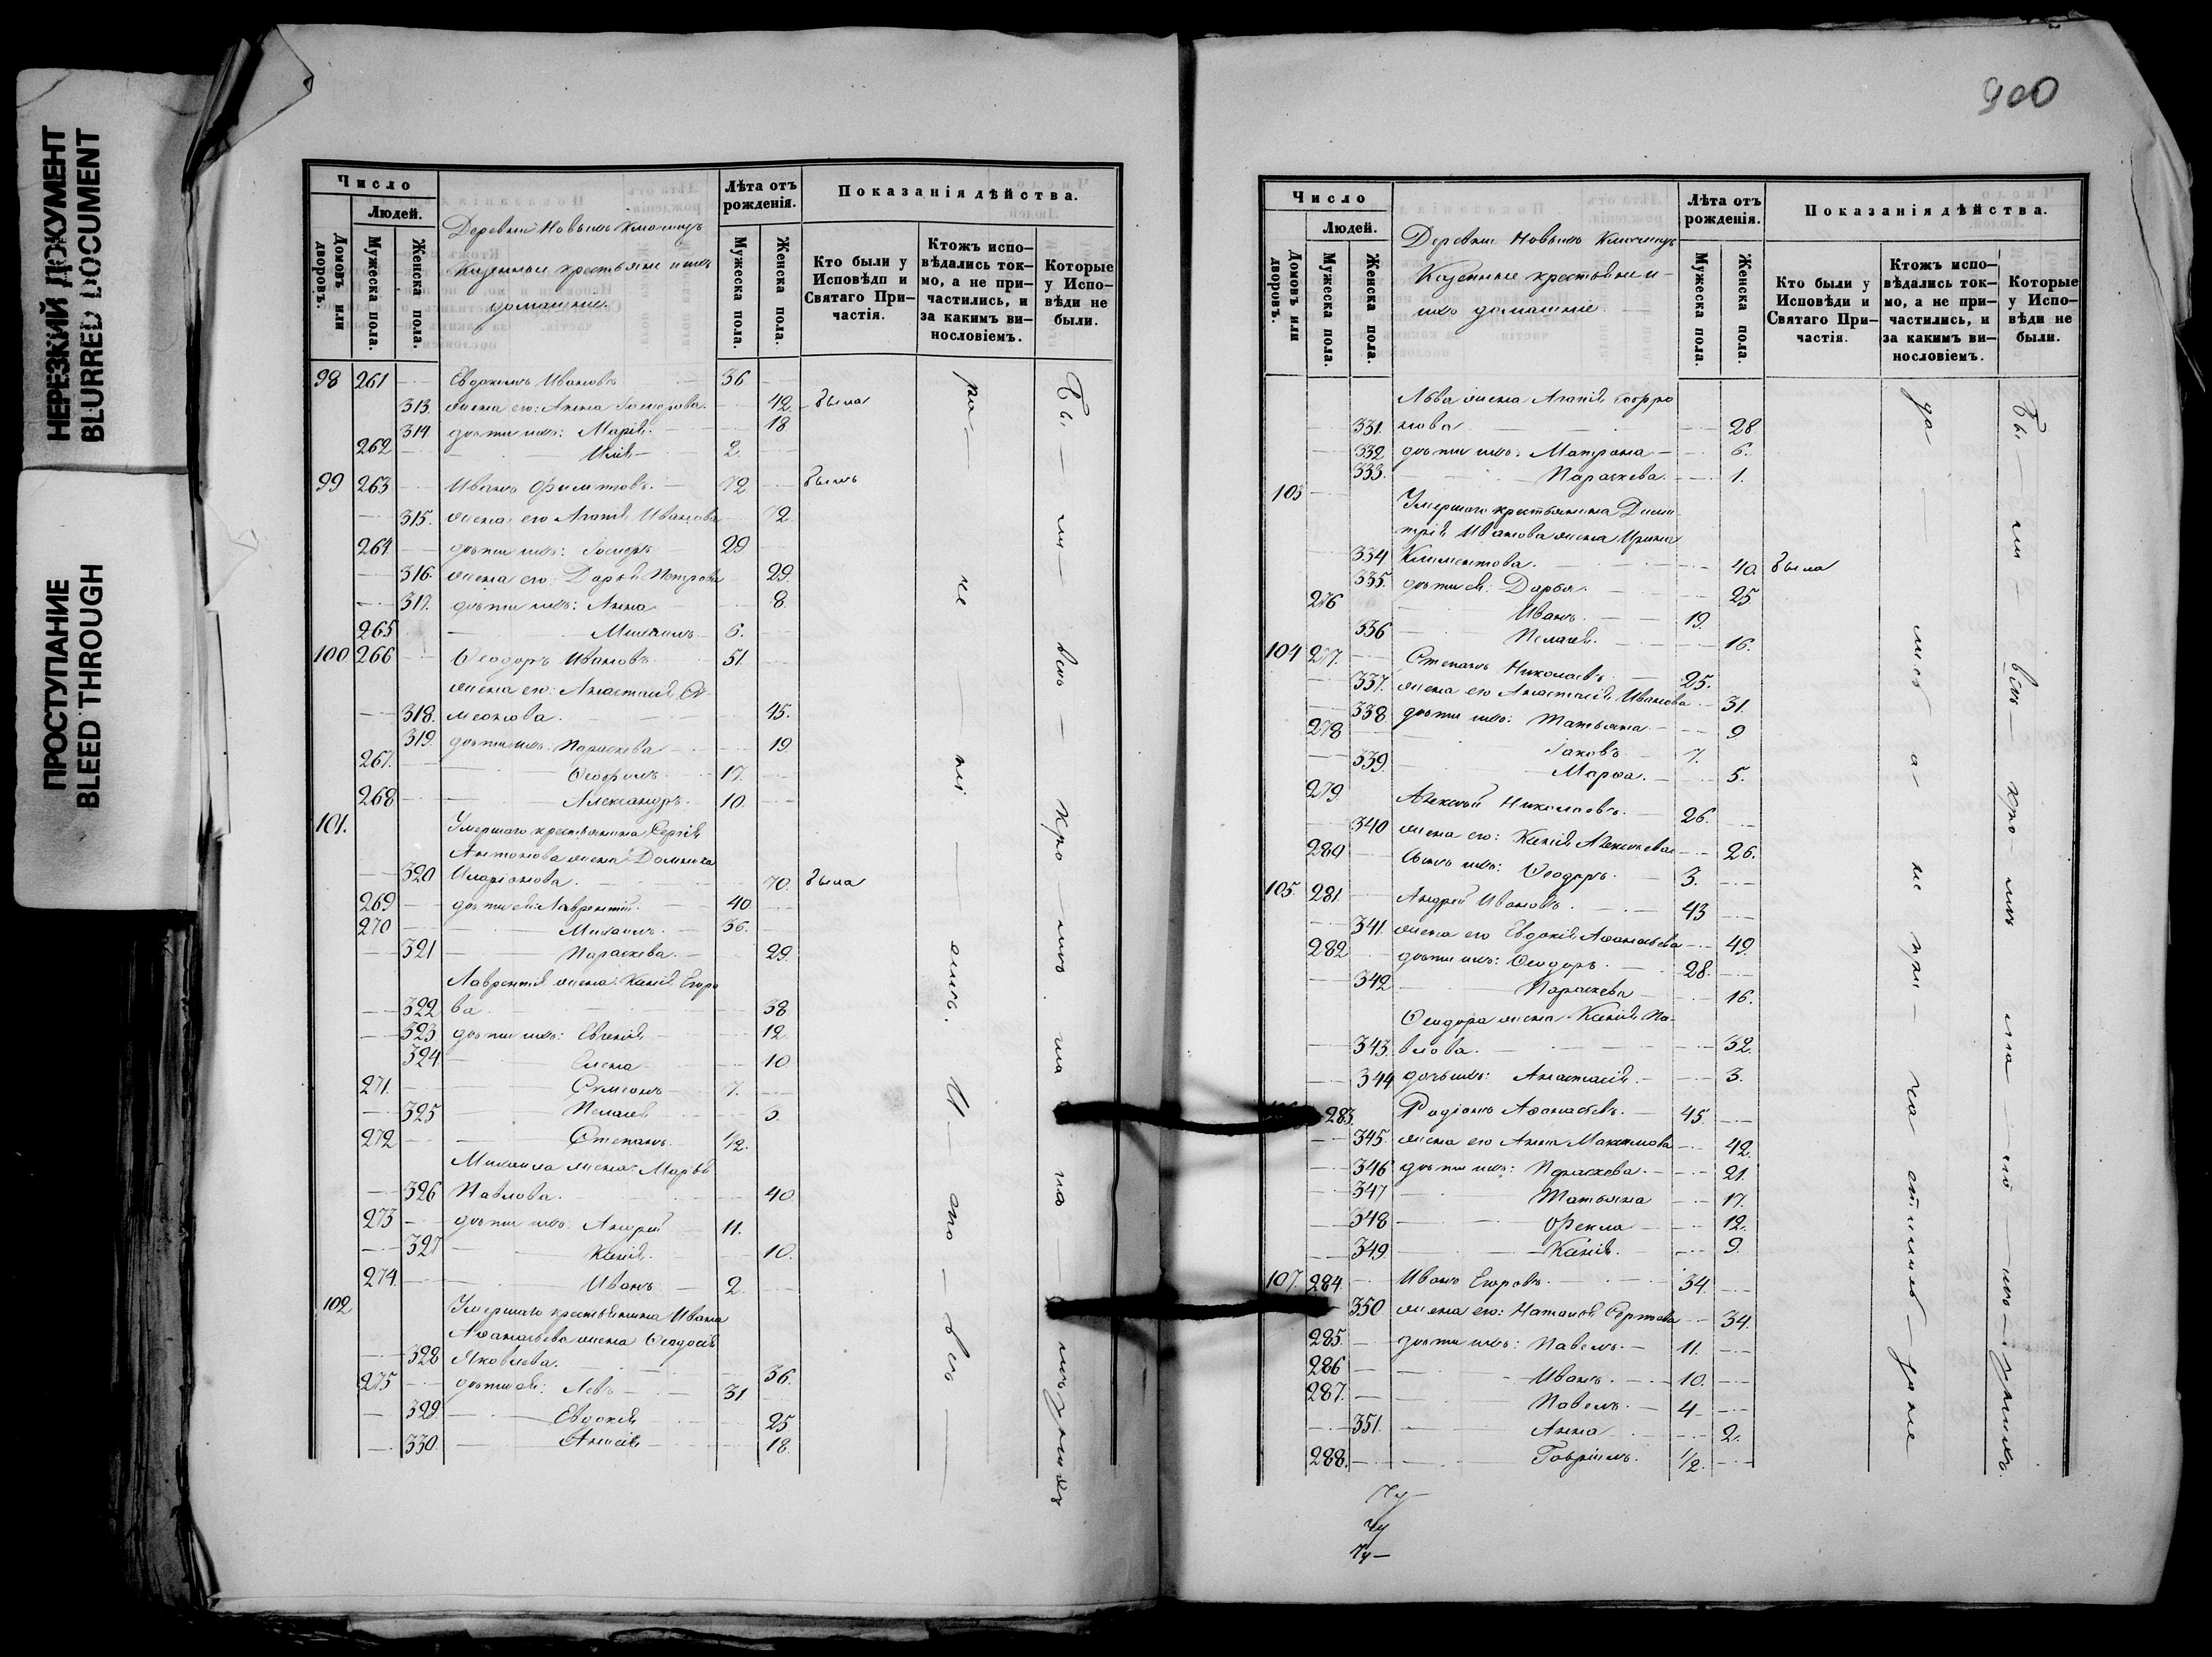 НЕРЕЗКИЙ ДОКУМЕНТ
BLURRED DOCUMENT
ПРОСТУПАНИЕ
BLEED THROUGH
Число
Людей.
Домовъ или дворовъ.
Мужеска пола.
Женска пола.
Деревни Новыхъ Ключищъ
Казенные крестьяне и ихъ
домашніе.
Лѣта отъ рожденія.
Мужеска пола.
Женска пола.
Показанія дѣйства.
Кто были у Исповѣди и Святаго Причастія.
Ктожъ исповѣдались токмо, а не причастились, и за какимъ винословіемъ.
Которые у Исповѣди не были.
98 261 Евдокимъ Ивановъ 36
313. жена его: Анна Исидорова. 42. была
314 дѣти ихъ: Марія. 18
262 Илія 2.
99 263 Иванъ Филиповъ. 72 былъ
315. жена его Агапія Иванова 72.
264 дѣти ихъ: Исидоръ 29
316. жена его: Дарья Петрова 29.
317. дѣти ихъ: Анна 8.
265 Михаилъ 6.
100 266 Ѳеодоръ Ивановъ. 51.
жена его: Анастасія Си-
318. меонова. 45.
319. дѣти ихъ: Параскева 19.
267. Ѳеофилъ. 17.
268 Александръ. 10.
101. Умершаго крестьянина Сергія
Антонова жена Домника
320 Иларіонова. 70. была
269 дѣти ея: Лаврентій. 40
270 Михаилъ. 36.
321 Параскева. 29.
Лаврентія жена: Ксенія Егоро
322 ва. 38
323 дѣти ихъ: Евгенія 12.
324 Елена 10.
271. Симеонъ 7.
325 Пелагея 5.
272 Степанъ. 1/2.
Михаила жена: Марья
326 Павлова. 40
273 дѣти ихъ: Андрей 11.
327 Ксенія. 10.
274. Иванъ 2.
102 Умершаго крестьянина Ивана
Аѳанасьева жена Ѳеодосія
328 Яковлева. 56.
275 дѣти ея: Левъ 31
329. Евдокія 25
330. Анисія 18.
900
Число
Людей.
Домовъ или дворовъ.
Мужеска пола.
Женска пола.
Деревни Новыхъ Ключищъ
Казенные крестьяне и
ихъ домашніе.
Лѣта отъ рожденія.
Мужеска пола.
Женска пола.
Показанія дѣйства.
Кто были у Исповѣди и Святаго Причастія.
Ктожъ исповѣдались токмо, а не причастились, и за какимъ винословіемъ.
Которые у Исповѣди не были.
Льва жена Агапія Софро
331. нова 28
332 дѣти ихъ: Матрона 6.
333. Параскева. 1.
103 Умершаго крестьянина Дими
трія Иванова жена Ирина
334 Климентова. 40. была
335. дѣти ея: Дарья. 25
276 Иванъ. 19.
336 Пелагея. 16.
104 277. Степанъ Николаевъ. 25.
337. жена его Анастасія Иванова 31.
338 дѣти ихъ: Татьяна 9
278 Іаковъ 7.
339. Марѳа. 5.
279 Алексѣй Николаевъ. 26.
340 жена его: Ксенія Алексѣева 26.
280 сынъ ихъ: Ѳеодоръ. 3.
105. 281. Андрей Ивановъ. 43
341. жена его Евдокія Аѳанасьева 49.
282 дѣти ихъ: Ѳеодоръ. 28.
342 Параскева 16.
Ѳеодора жена Ксенія Па-
343. влова. 32.
344 дочь ихъ: Анастасія. 3.
283. Родіонъ Аѳанасьевъ. 45.
345. жена его Анна Максимова 42.
346 дѣти ихъ: Параскева. 21.
347 Татьяна 17.
348 Ѳекла 12.
349. Ксенія. 9.
107. 284. Иванъ Егоровъ. 34.
350 жена его: Наталія 34.
285. дѣти ихъ: Павелъ. 11.
286 Иванъ. 10.
287. Павелъ. 4
351. Анна 2.
288. Гавріилъ. 1/2.